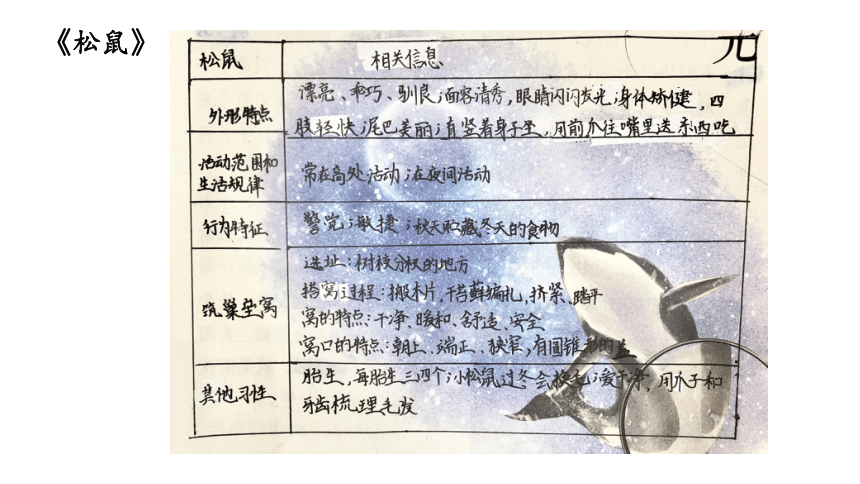 《松鼠》
元
松鼠 相关信息
外形特点 漂亮、乖巧、驯良;面容清秀,眼睛闪闪发光;身体矫健,四
肢轻快;尾巴美丽;直竖着身子坐,用前爪往嘴里送东西吃
活动范围和
生活规律 常在高处活动;在夜间活动
行为特征 警觉;敏捷;秋天贮藏冬天的食物
筑巢垒窝
选址:树枝分杈的地方
搭窝过程:搬木片,干苔藓编扎,挤紧、踏平
窝的特点:干净、暖和、舒适、安全
窝口的特点:朝上、端正、狭窄,有圆锥形的盖
其他习性 胎生,每胎生三四个;小松鼠过冬会换毛;爱干净,用爪子和
牙齿梳理毛发